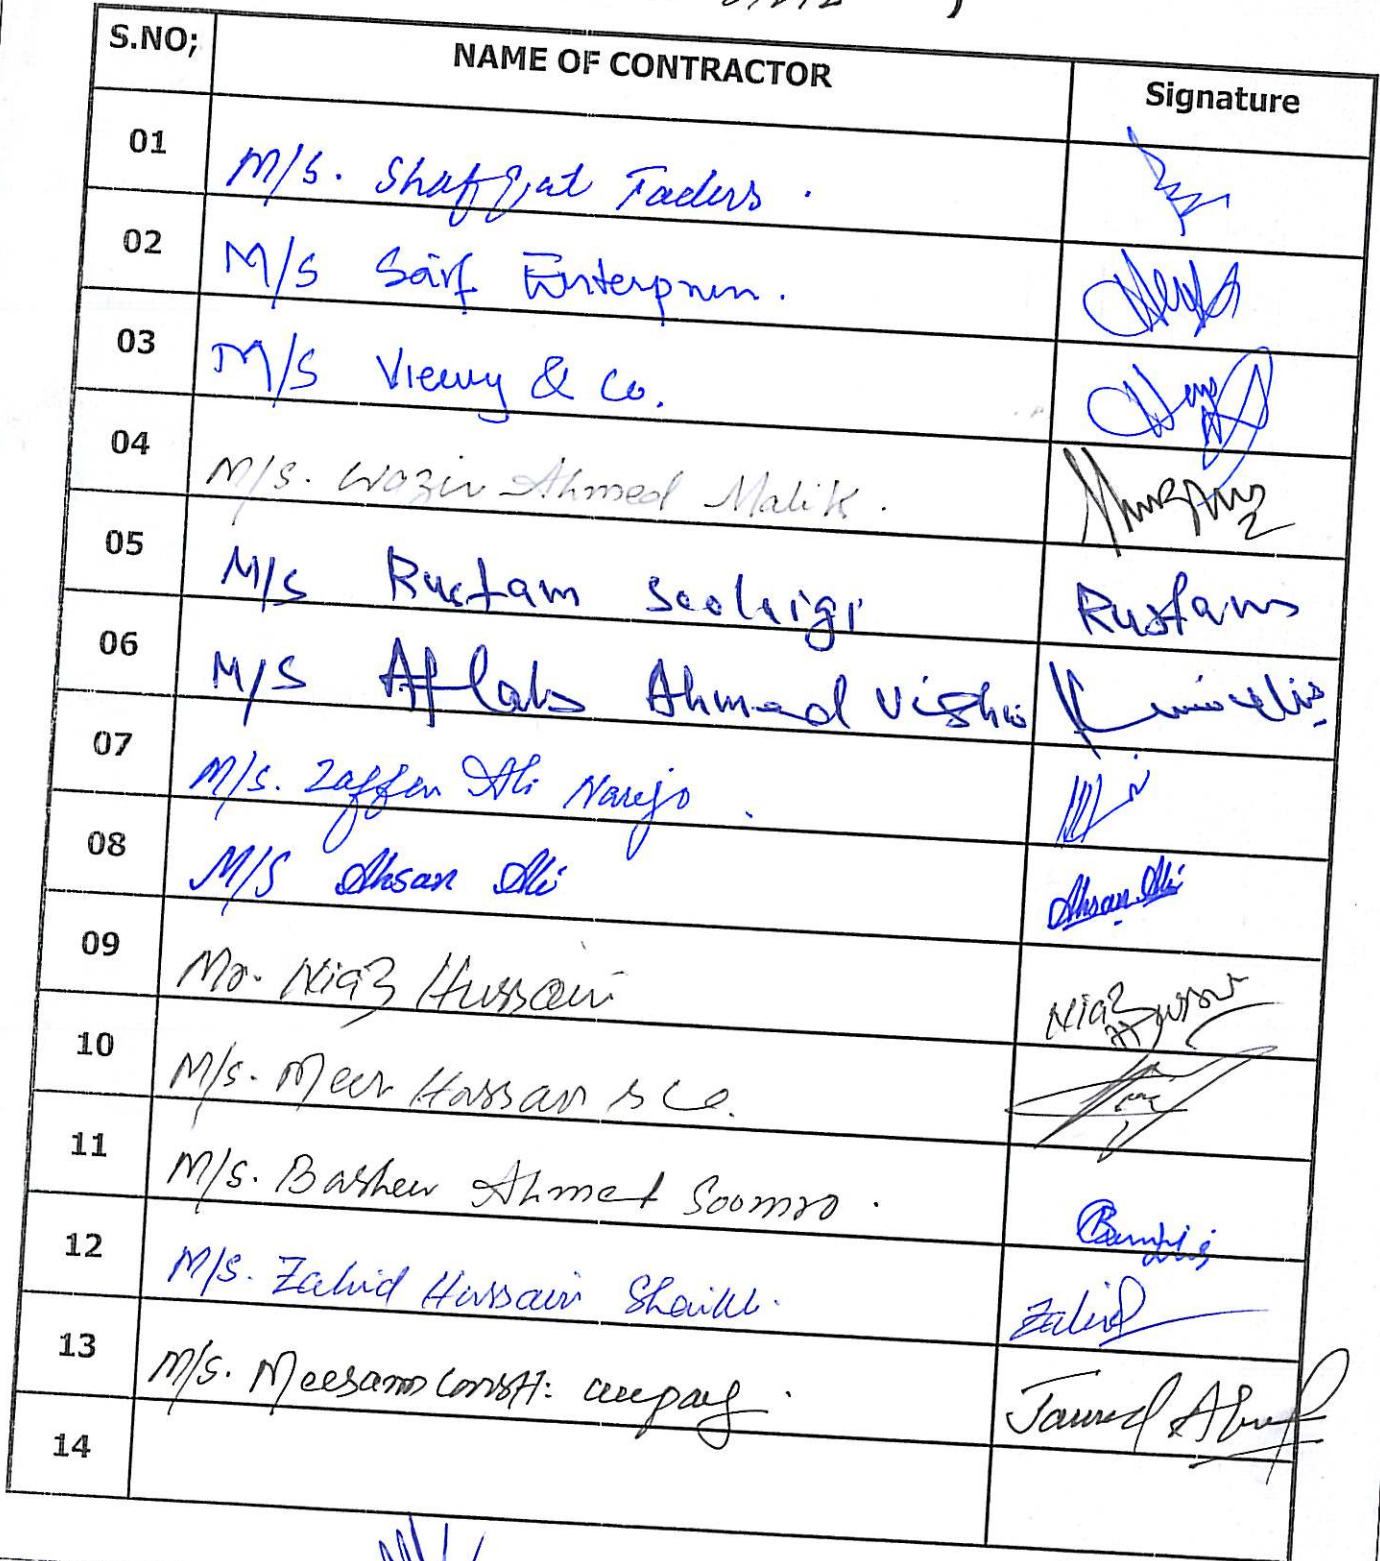 S.NO; NAME OF CONTRACTOR Signature
01 M/S. Shafqat Taders.
02 M/S Saif Enterprises.
03 M/S Vieuy & Co.
04 M/S. Wazir Ahmed Malik.
05 M/S Rustam Seelaigi Rustam
06 M/S Aflab Ahmed
07 M/S. Zaffer Ali Narejo.
08 M/S Ahsan Ali Ahsan Ali
09 Mr. Niaz Hussain Niaz Hussain
10 M/S. Meer Hassan & Co.
11 M/S. Basheer Ahmed Soomro.
12 M/S. Zahid Hussain Shaikh. Zahid
13 M/S. Meesam Constt: company.
14